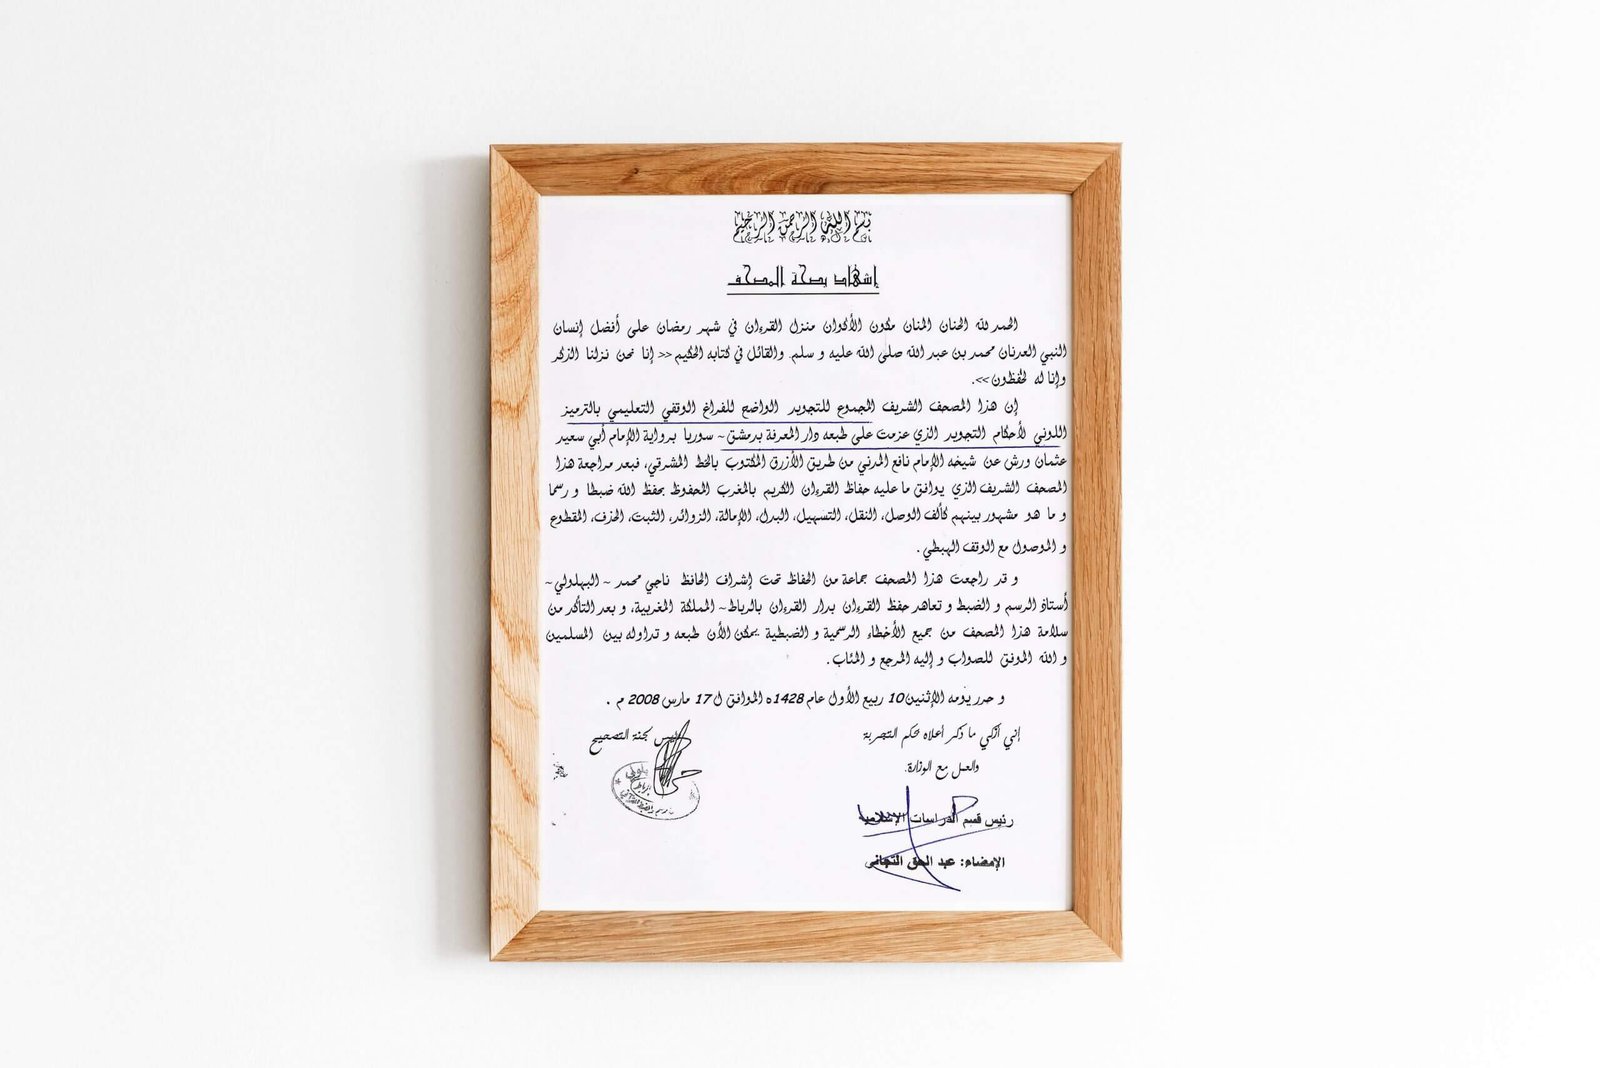 بسم الله الرحمن الرحيم
إشهاد بصحة المصحف
الحمد لله الحنان المنان مكون الأكوان منزل القرءان في شهر رمضان على أفضل إنسان
النبي العدنان محمد بن عبد الله صلى الله عليه و سلم. والقائل في كتابه الحكيم << إنا نحن نزلنا الذكر
وإنا له لحفظون >>.
إن هذا المصحف الشريف المجموع للتجويد الواضح للفراغ الوقفي التعليمي بالترميز
اللوني لأحكام التجويد الذي عزمت على طبعه دار المعرفة بدمشق~ سوريا برواية الإمام أبي سعيد
عثمان ورش عن شيخه الإمام نافع المدني من طريق الأزرق المكتوب بالخط المشرقي، فبعد مراجعة هذا
المصحف الشريف الذي يوافق ما عليه حفاظ القرءان الكريم بالمغرب المحفوظ بحفظ الله ضبطا و رسما
و ما هو مشهور بينهم كألف الوصل، النقل، التسهيل، البدل، الإمالة، الزوائد، الثبت، الحذف، المقطوع
و الموصول مع الوقف الهبطي .
و قد راجعت هذا المصحف جماعة من الحفاظ تحت إشراف الحافظ ناجي محمد ~ البهلولي~
أستاذ الرسم و الضبط و تعاهد حفظ القرءان بدار القرءان بالرباط~ المملكة المغربية، و بعد التأكد من
سلامة هذا المصحف من جميع الأخطاء الرسمية و الضبطية يمكن الأن طبعه و تداوله بين المسلمين
و الله الموفق للصواب و إليه المرجع و المئاب.
و حرر يومه الإثنين10 ربيع الأول عام 1428ه الموافق ل 17 مارس 2008 م .
إني أزكي ما ذكر أعلاه بحكم التجربة
والعمل مع الوزارة.
رئيس قسم الدراسات الإسلامية
الإمضاء: عبد الحق التجاني
رئيس لجنة التصحيح